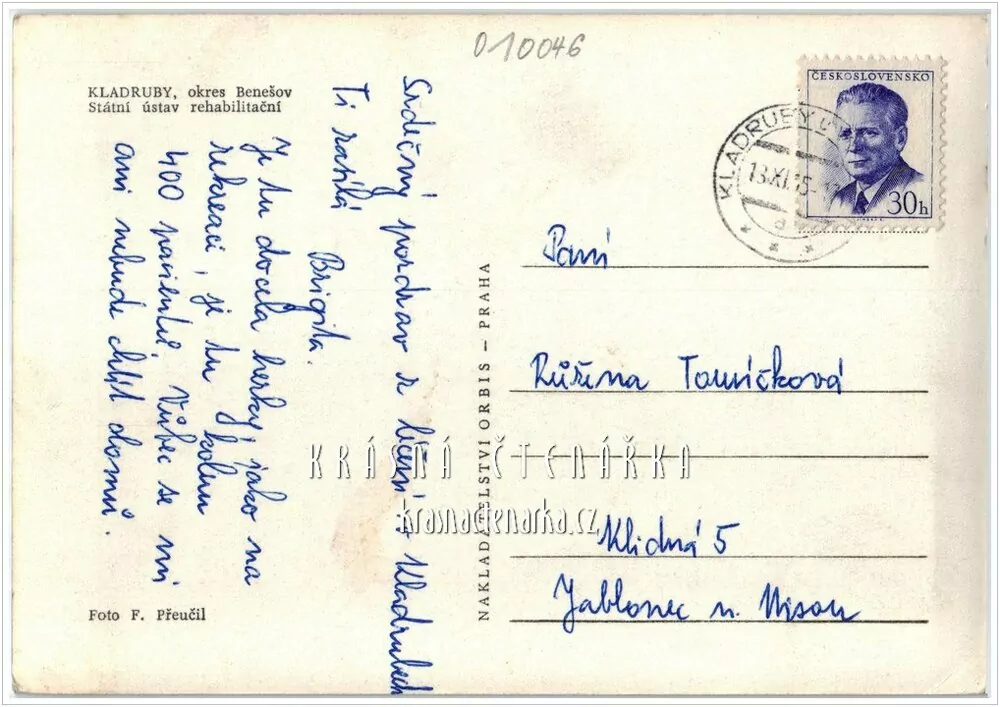 010046
KLADRUBY, okres Benešov
Státní ústav rehabilitační
ČESKOSLOVENSKO
30h
KLADRUBY U
13.XI.
Srdečný pozdrav z léčení v Kladrubech
Ti zasílá
Brigita.
Je tu docela hezky, jako na
rekreaci, je tu kolem
400 pacientů. Vůbec se mi
ani nebude chtít domů.
Foto F. Přeučil
NAKLADATELSTVÍ ORBIS – PRAHA
Paní
Růžena Tomíčková
Klidná 5
Jablonec n. Nisou
KRÁSNÁ ČTENÁŘKA
krasnactenarka.cz